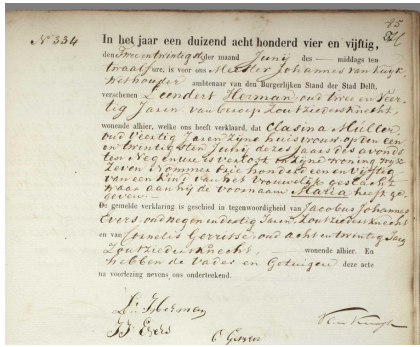 85
No 334
In het jaar een duizend acht honderd vier en vijftig,
den Twee en twintigste der maand Junij des — middags ten
twaalf ure, is voor ons Meester Johannes van Kuyk
Wethouder ambtenaar van den Burgerlijken Stand der Stad Delft,
verschenen Leendert Herman, oud twee en Veer-
tig Jaren van beroep Zoutziedersknecht,
wonende alhier, welke ons heeft verklaard, dat Clasina Muller,
oud Veertig Jaren zijne huisvrouw op den een
en twintigsten Junij dezes Jaars des avonds
ten Negen ure is verlost in zijne woning wijk
Zeven Nommer drie honderd een en vijftig
van een Kind van het vrouwelijk geslacht
waar aan hij de voornaam Maria heeft ge-
geven —
De gemelde verklaring is geschied in tegenwoordigheid van Jacobus Johannes
Evers, oud negen en dertig Jaren, Zoutziedersknecht
en van Cornelis Gerritse oud acht en twintig Jaren
Zoutziedersknecht, wonende alhier. En
hebben de Vader en Getuigen deze acte
na voorlezing nevens ons onderteekend.
L: Herman
JJ Evers
C Gerren